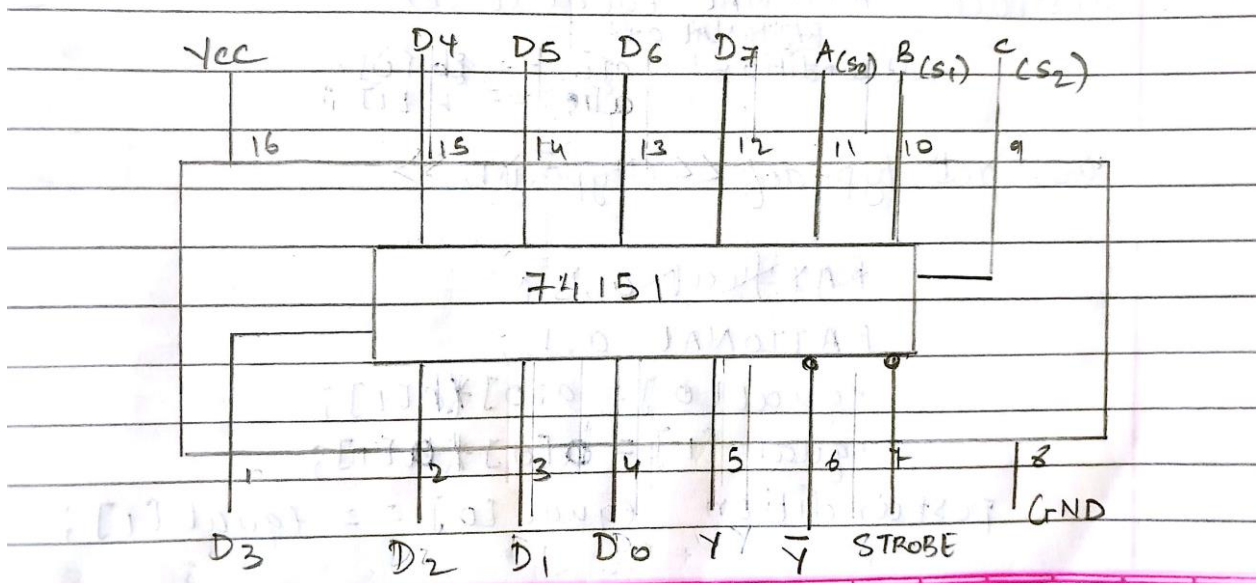 Vcc D4 D5 D6 D7 A(S0) B(S1) C(S2)
16 15 14 13 12 11 10 9
74151
1 2 3 4 5 6 7 8
D3 D2 D1 D0 Y Y̅ STROBE GND